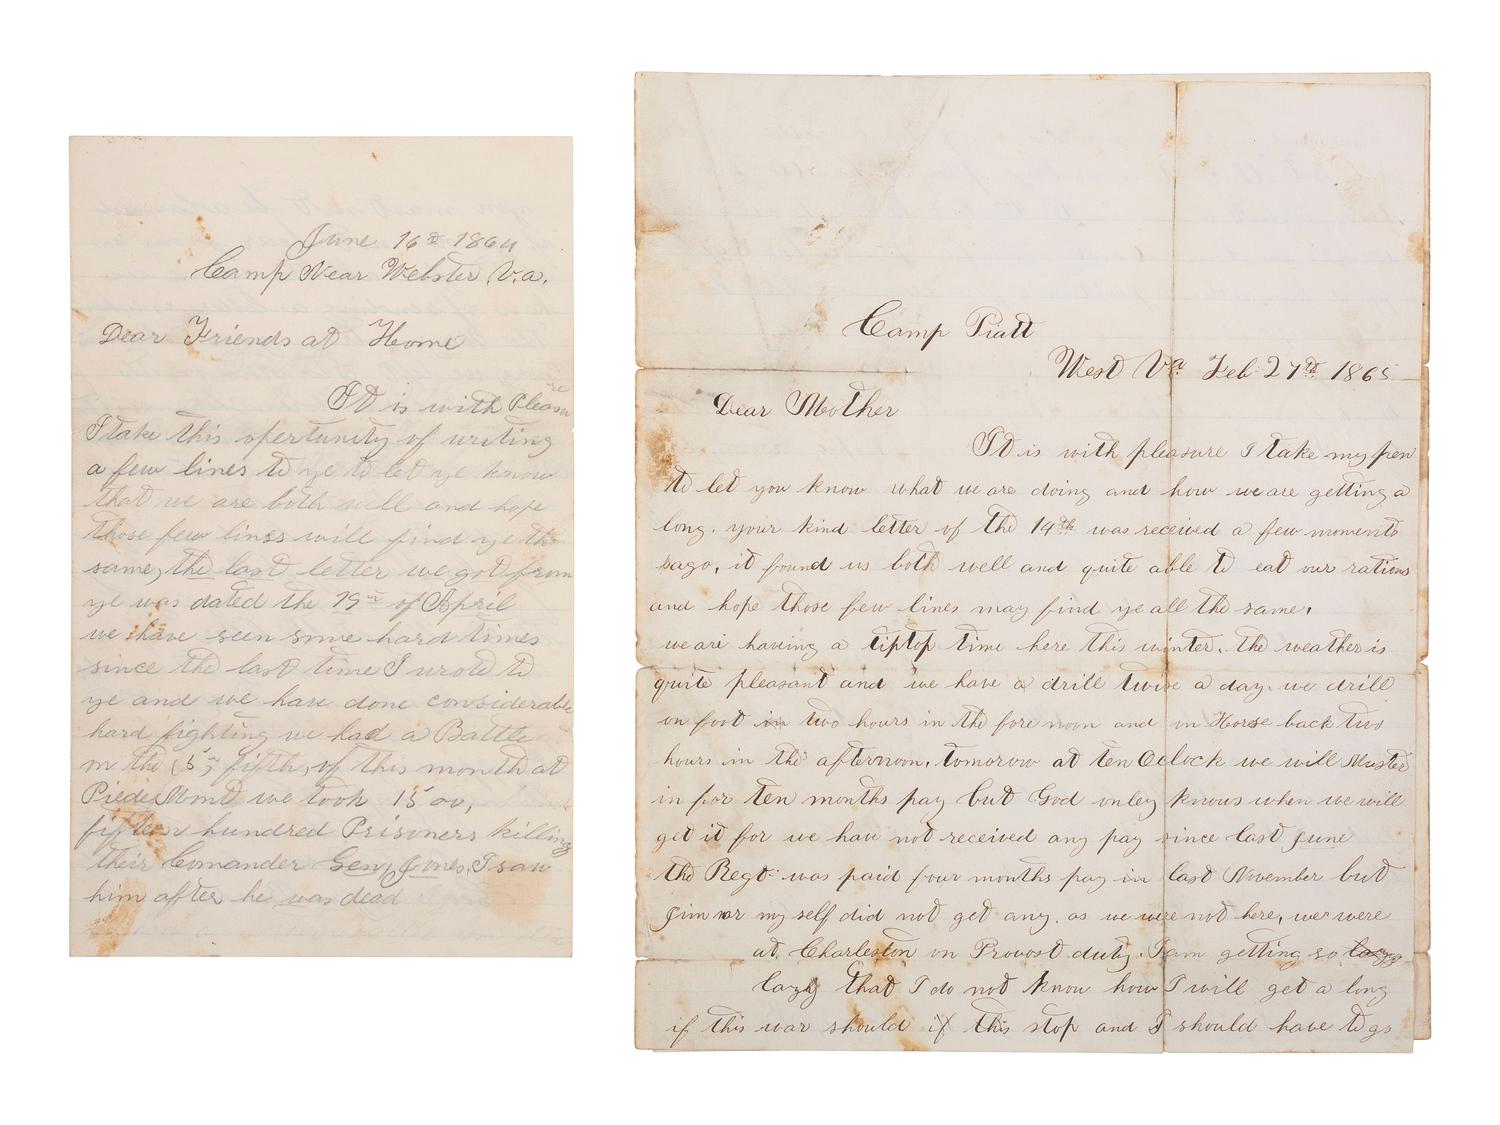 June 16th 1864
Camp Near Webster V.a.
Dear Friends at Home
It is with Pleasure
I take this opertunity of writing
a few lines to ye to let ye know
that we are both well and hope
those few lines will find ye the
same, the last letter we got from
ye was dated the 19th of April
we have seen some hard times
since the last time I wrote to
ye and we have done considerable
hard fighting we had a Battle
on the (5th) fifth, of this month at
Piede Mont we took 1500,
fifteen hundred Prisoners killing
their Comander Genr Jones, I saw
him after he was dead
Camp Piatt
West Va Feb 27th 1865
Dear Mother
It is with pleasure I take my pen
to let you know what we are doing and how we are getting a
long. your kind letter of the 14th was received a few moments
ago, it found us both well and quite able to eat our rations
and hope those few lines may find ye all the same,
we are having a tiptop time here this winter. the weather is
quite pleasant and we have a drill twise a day. we drill
on foot in two hours in the fore noon and on Horse back two
hours in the afternoon, tomorow at ten Oclock we will Muster
in for ten months pay but God onley knows when we will
get it for we have not received any pay since last june
the Regt was paid four months pay in last November but
Jim nor my self did not get any. as we were not here, we were
at Charleston on Provost duty. I am getting so lazy
lazy that I do not know how I will get a long
if this war should if this stop and I should have to go